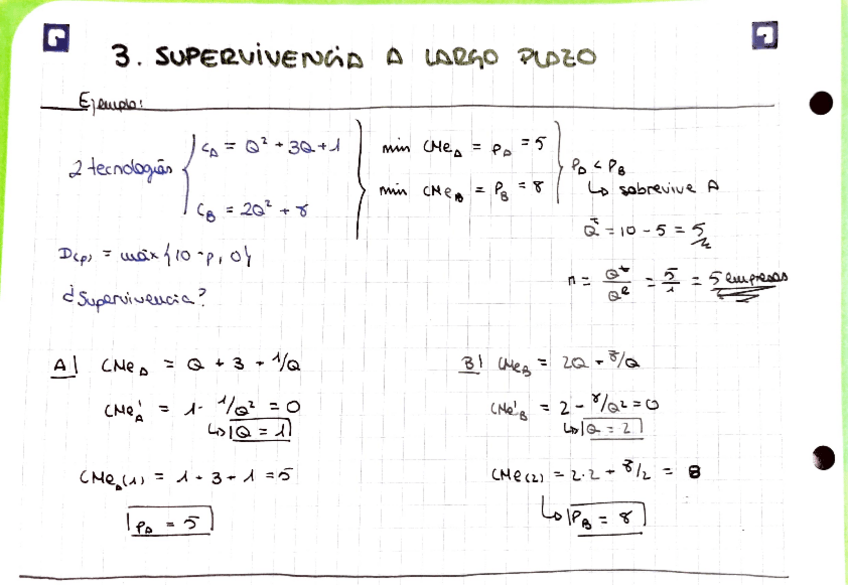 3. SUPERVIVENCIA A LARGO PLAZO
Ejemplo:
2 tecnologías
C_A = Q² + 3Q + 1
C_B = 2Q² + 8
min CMe_A = P_A = 5
min CMe_B = P_B = 8
P_A < P_B
↳ sobrevive A
Q^t = 10 - 5 = 5
n = Q^t/Q^e = 5/1 = 5 empresas
D(p) = máx {10 - p, 0}
¿Supervivencia?
A| CMe_A = Q + 3 + 1/Q
CMe'_A = 1 - 1/Q² = 0
↳ Q = 1
CMe_A(1) = 1 + 3 + 1 = 5
P_A = 5
B| CMe_B = 2Q + 8/Q
CMe'_B = 2 - 8/Q² = 0
↳ Q = 2
CMe(2) = 2·2 + 8/2 = 8
↳ P_B = 8